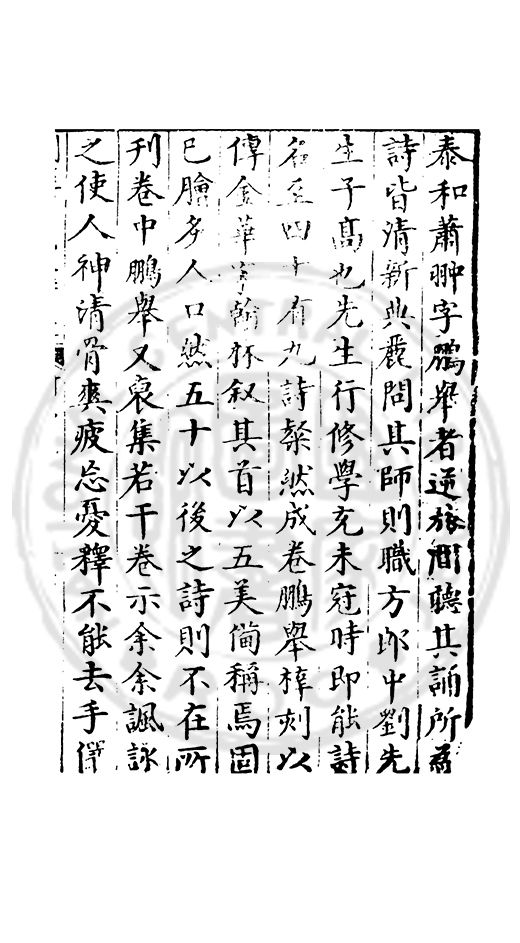 泰和蕭翀字鵬舉者逆旅間聽其誦所為
詩皆清新典麗問其師則職方郎中劉先
生子髙也先生行修學充未冠時即能詩
至四十有九詩粲然成卷鵬舉梓刻以
傳金華宋翰林叙其首以五美備稱焉固
已膾多人口然五十以後之詩則不在所
刋卷中鵬舉又裒集若干卷示余余諷詠
之使人神清骨爽疲忘憂釋不能去手僕